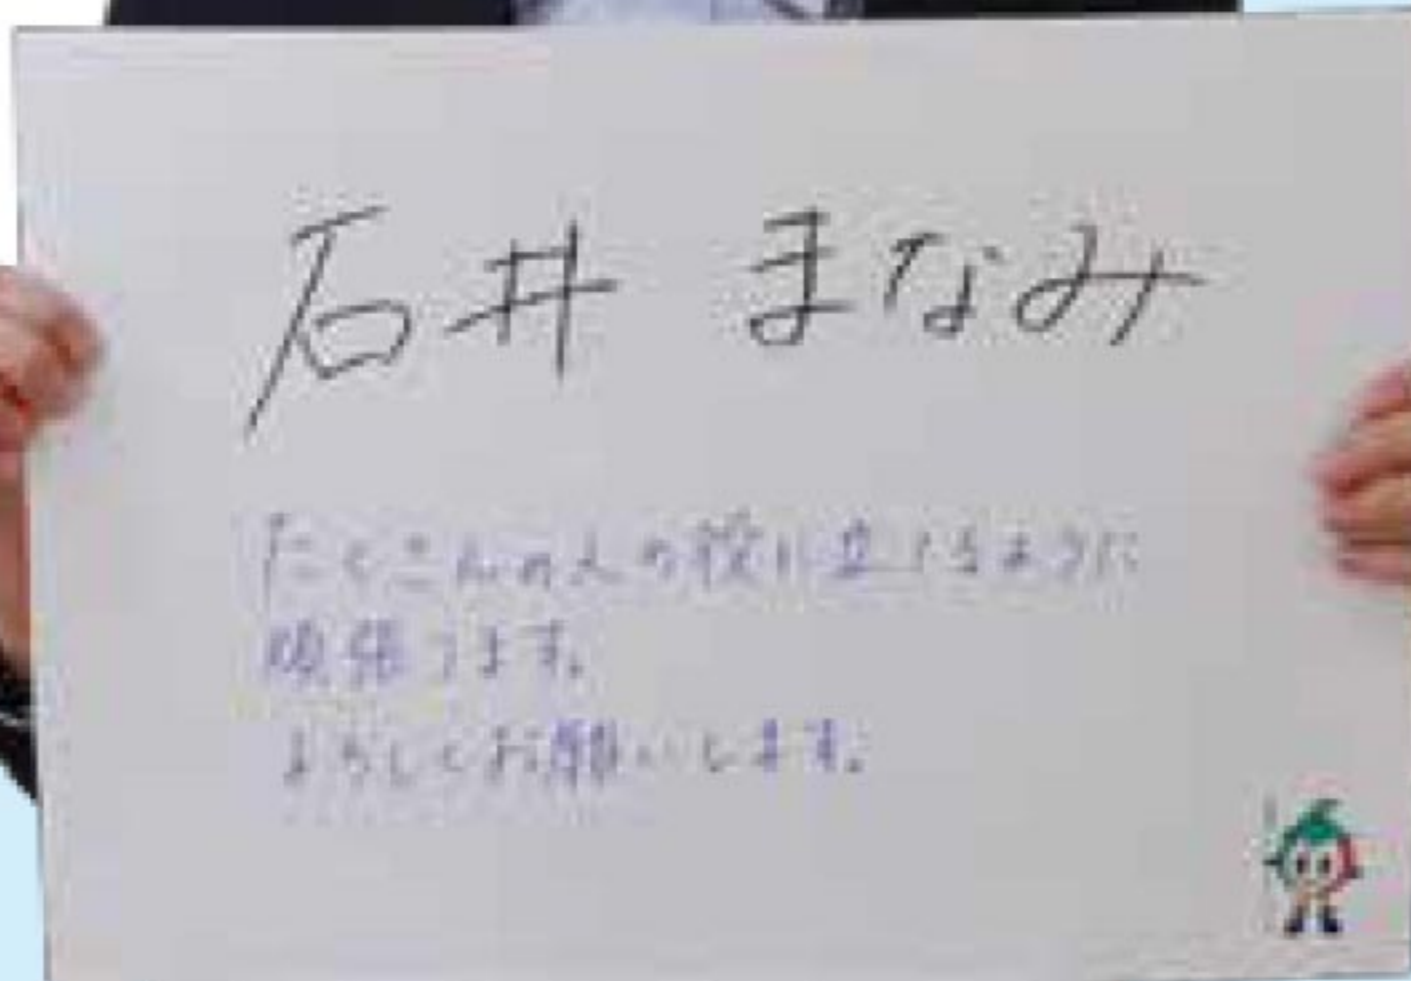 石井 まなみ
たくさんの人の役に立てるように
頑張ります。
よろしくお願いします。